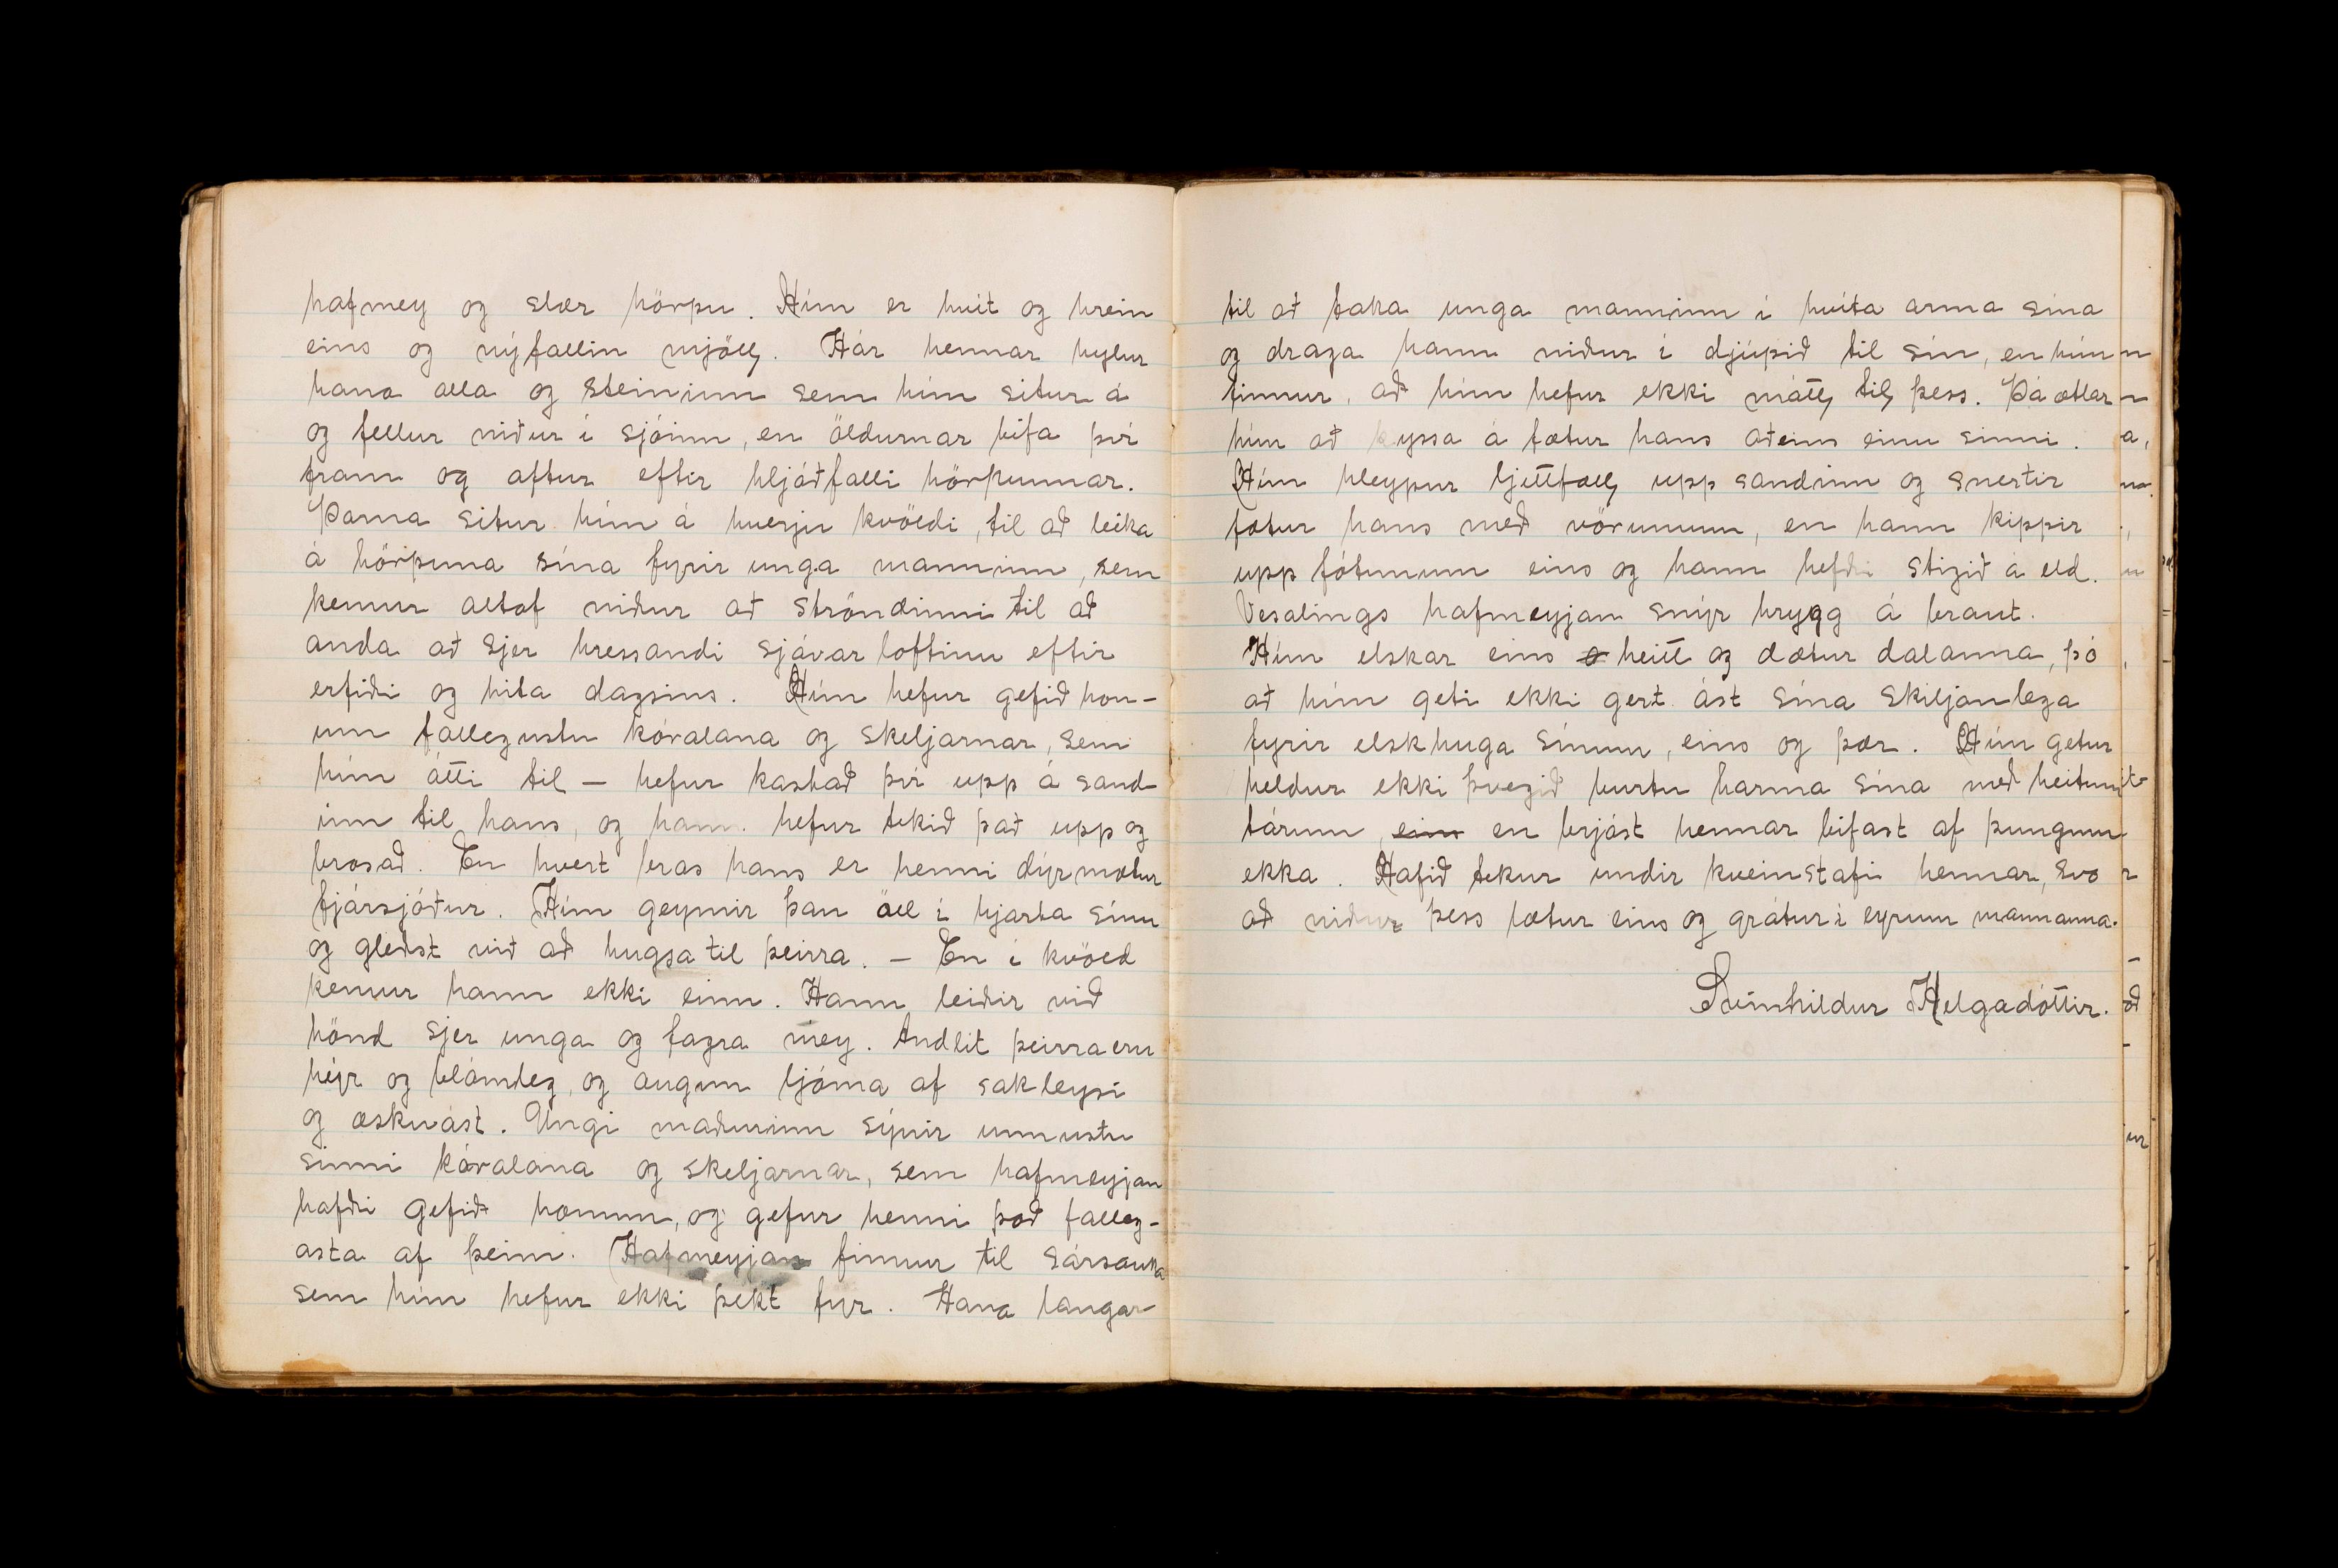 hafmey og slær hörpu. Hún er hvít og hrein
eins og nýfallin mjöll. Hár hennar hylur
hana alla og steininn sem hún situr á
og fellur niður í sjóinn, en öldurnar bifa því
fram og aftur eftir hljóðfalli hörpunnar.
Þarna situr hún á hverju kvöldi, til að leika
á hörpuna sína fyrir unga manninn, sem
kemur altaf niður að ströndinni til að
anda að sjer hressandi sjávarloftinu eftir
erfiði og hita dagsins. Hún hefur gefið hon-
um fallegustu kóralana og skeljarnar, sem
hún átti til — hefur kastað því upp á sand-
inn til hans, og hann hefur tekið það upp og
brosað. En hvert bros hans er henni dýrmætur
fjársjóður. Hún geymir þau öll í hjarta sínu
og gleðst við að hugsa til þeirra. — En í kvöld
kemur hann ekki einn. Hann leiðir við
hönd sjer unga og fagra mey. Andlit þeirra eru
hýr og blómleg, og augun ljóma af sakleysi
og æskuást. Ungi maðurinn sýnir unnustu
sinni kóralana og skeljarnar, sem hafmeyjan
hafði gefið honum, og gefur henni það falleg-
asta af þeim. Hafmeyjan finnur til sársauka
sem hún hefur ekki þekt fyr. Hana langar
til að taka unga manninn í hvíta arma sína
og draga hann niður í djúpið til sín, en hún
finnur, að hún hefur ekki mátt til þess. Þá ætlar
hún að kyssa á fætur hans aðeins einu sinni.
Hún hleypur ljettfætt upp sandinn og snertir
fætur hans með vörunum, en hann kippir
upp fótunum eins og hann hefði stigið á eld.
Vesalings hafmeyjan snýr hrygg á braut.
Hún elskar eins o heitt og dætur dalanna, þó
að hún geti ekki gert ást sína skiljanlega
fyrir elskhuga sínum, eins og þær. Hún getur
heldur ekki þvegið burtu harma sína með heitum
tárum, eins en brjóst hennar bifast af þungum
ekka. Hafið tekur undir kveinstafi hennar, svo
að niður þess lætur eins og grátur í eyrum mannanna.
Svínhildur Helgadóttir.